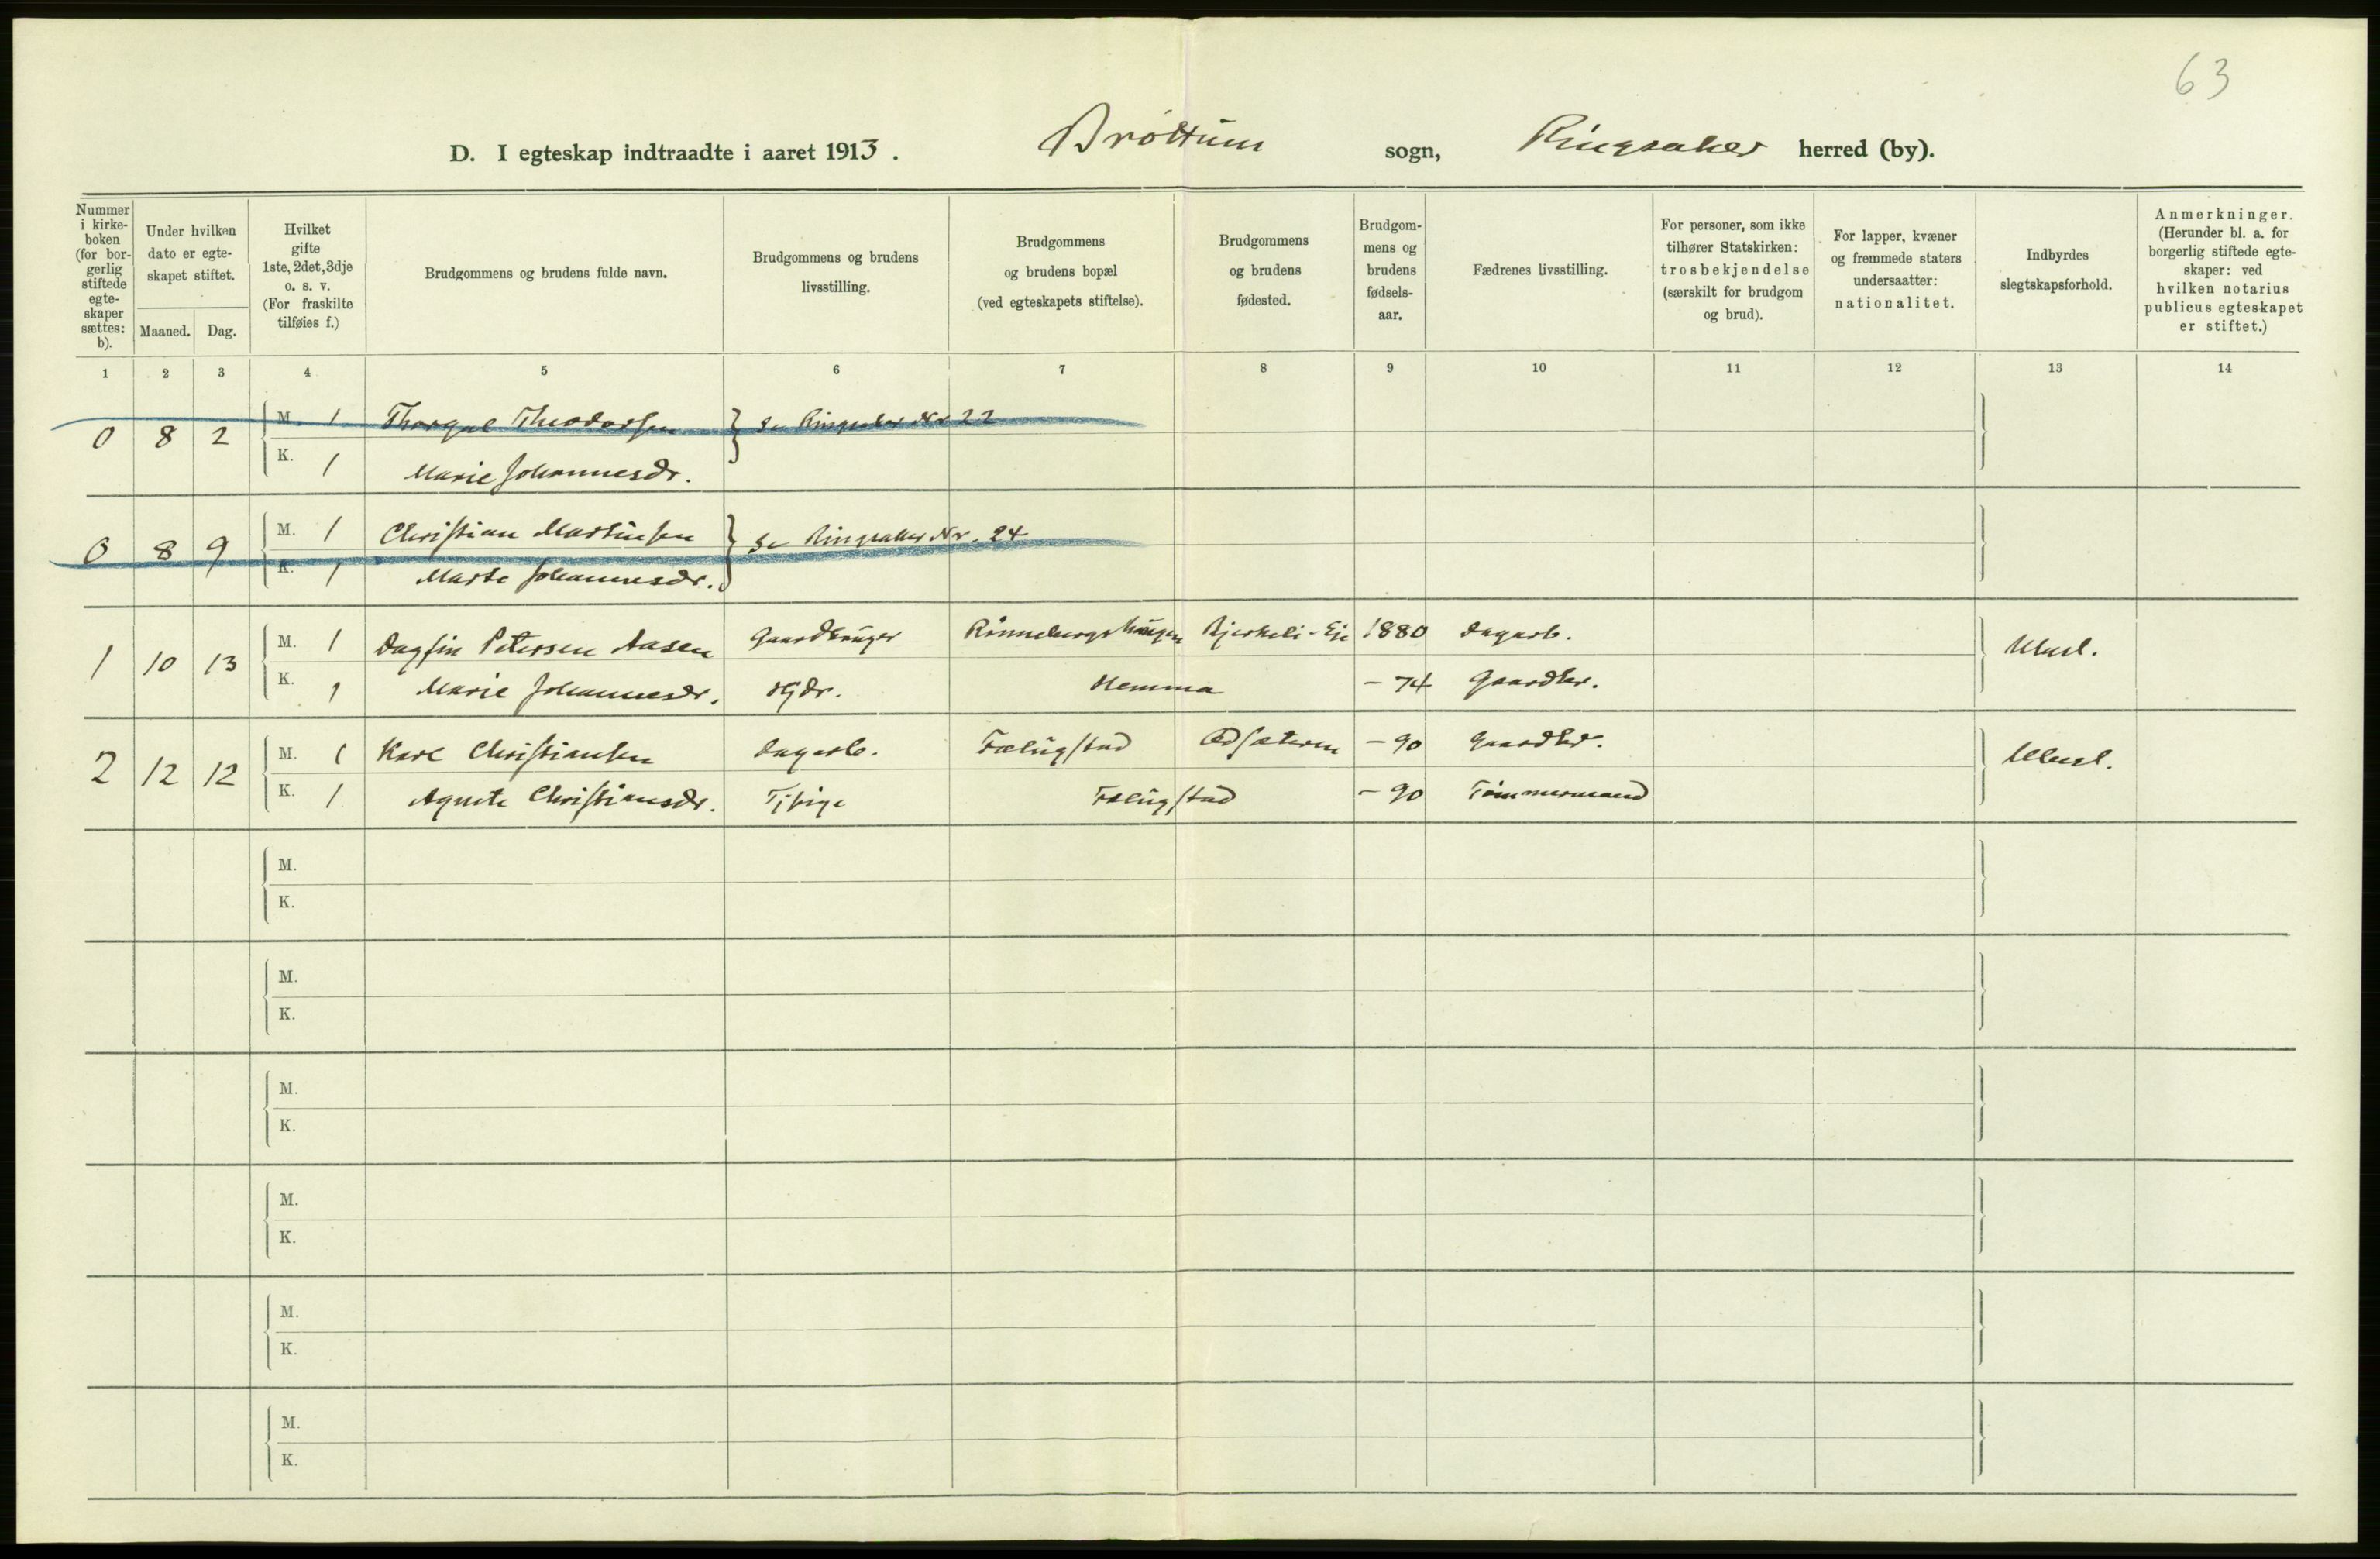 63
D. I egteskap indtraadte i aaret 1913. Brøttum sogn, Ringsaker herred (by).
Nummer i kirke-boken (for bor-gerlig stiftede egte-skaper sættes: b).
Under hvilken dato er egte-skapet stiftet.
Maaned. Dag.
Hvilket gifte 1ste, 2det, 3dje o. s. v. (For fraskilte tilføies f.)
Brudgommens og brudens fulde navn.
Brudgommens og brudens livsstilling.
Brudgommens og brudens bopæl (ved egteskapets stiftelse).
Brudgommens og brudens fødested.
Brudgom-mens og brudens fødsels-aar.
Fædrenes livsstilling.
For personer, som ikke tilhører Statskirken: trosbekjendelse (særskilt for brudgom og brud).
For lapper, kvæner og fremmede staters undersaatter: nationalitet.
Indbyrdes slegtskapsforhold.
Anmerkninger. (Herunder bl. a. for borgerlig stiftede egte-skaper: ved hvilken notarius publicus egteskapet er stiftet.)
1 2 3 4 5 6 7 8 9 10 11 12 13 14
0 8 2 M. 1 Theodorsen Se Ringsaker Nr 22
K. 1 Marie Johannesdr.
0 8 9 M. 1 Christian Martinsen Se Ringsaker Nr. 24
K. 1 Marte Johannesdr.
1 10 13 M. 1 Dagfin Petersen Aasen Gaardbruger Rønnebergshaugen Bjerkeli-Eie 1880 Dagarb. Ubesl.
K. 1 Marie Johannesdr. Gdr. Hemma - 74 Gaardbr.
2 12 12 M. 1 Karl Christiansen Dagarb. Fælugstad Ødsæteren - 90 Gaardbr. Ubesl.
K. 1 Agnete Christiansdr. Tjpige Fælugstad - 90 Tømmermand
M.
K.
M.
K.
M.
K.
M.
K.
M.
K.
M.
K.